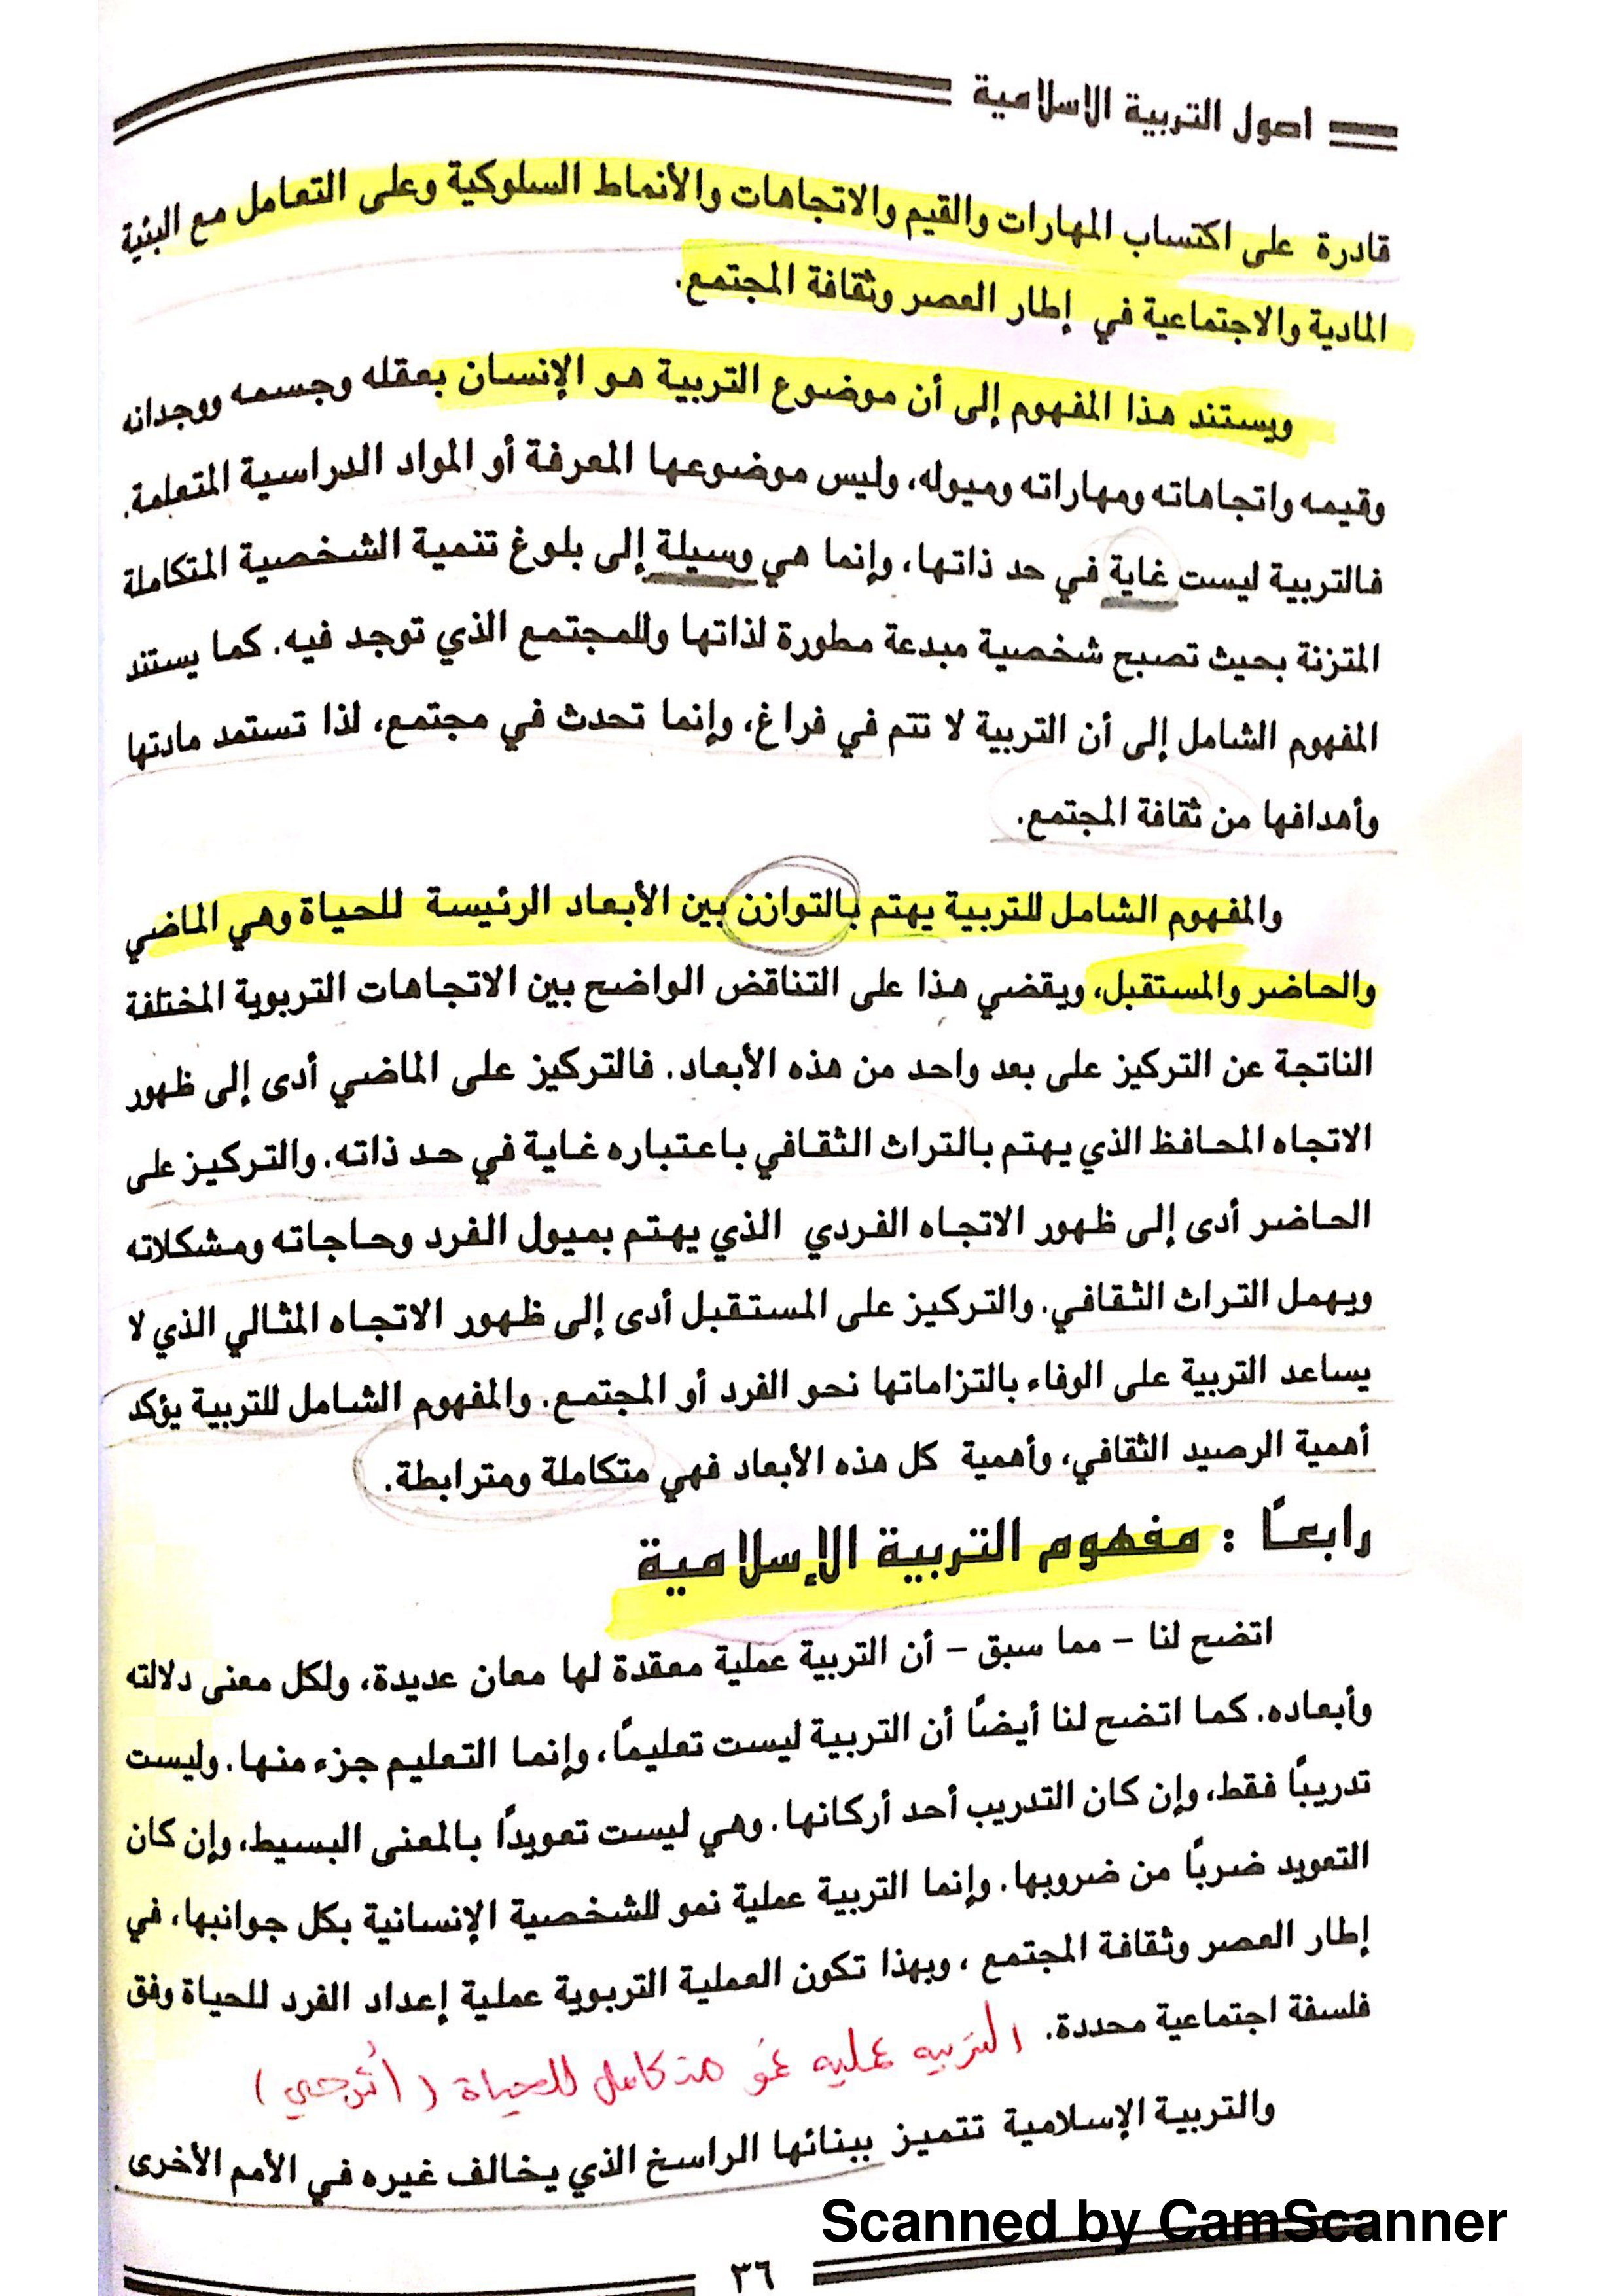 اصول التربية الاسلامية
قادرة على اكتساب المهارات والقيم والاتجاهات والأنماط السلوكية وعلى التعامل مع البنية
المادية والاجتماعية في إطار العصر وثقافة المجتمع.
ويستند هذا المفهوم إلى أن موضوع التربية هو الإنسان بعقله وجسمه ووجدانه
وقيمه واتجاهاته ومهاراته وميوله، وليس موضوعها المعرفة أو المواد الدراسية المتعلمة.
فالتربية ليست غاية في حد ذاتها، وإنما هي وسيلة إلى بلوغ تنمية الشخصية المتكاملة
المتزنة بحيث تصبح شخصية مبدعة مطورة لذاتها وللمجتمع الذي توجد فيه. كما يستند
المفهوم الشامل إلى أن التربية لا تتم في فراغ، وإنما تحدث في مجتمع، لذا تستمد مادتها
وأهدافها من ثقافة المجتمع.
والمفهوم الشامل للتربية يهتم بالتوازن بين الأبعاد الرئيسة للحياة وهي الماضي
والحاضر والمستقبل، ويقضي هذا على التناقض الواضح بين الاتجاهات التربوية المختلفة
الناتجة عن التركيز على بعد واحد من هذه الأبعاد. فالتركيز على الماضي أدى إلى ظهور
الاتجاه المحافظ الذي يهتم بالتراث الثقافي باعتباره غاية في حد ذاته. والتركيز على
الحاضر أدى إلى ظهور الاتجاه الفردي الذي يهتم بميول الفرد وحاجاته ومشكلاته
ويهمل التراث الثقافي. والتركيز على المستقبل أدى إلى ظهور الاتجاه المثالي الذي لا
يساعد التربية على الوفاء بالتزاماتها نحو الفرد أو المجتمع. والمفهوم الشامل للتربية يؤكد
أهمية الرصيد الثقافي، وأهمية كل هذه الأبعاد فهي متكاملة ومترابطة.
رابعاً : مفهوم التربية الإسلامية
اتضح لنا – مما سبق – أن التربية عملية معقدة لها معان عديدة، ولكل معنى دلالته
وأبعاده. كما اتضح لنا أيضاً أن التربية ليست تعليماً، وإنما التعليم جزء منها. وليست
تدريباً فقط، وإن كان التدريب أحد أركانها. وهي ليست تعويداً بالمعنى البسيط، وإن كان
التعويد ضرباً من ضروبها. وإنما التربية عملية نمو للشخصية الإنسانية بكل جوانبها، في
إطار العصر وثقافة المجتمع ، وبهذا تكون العملية التربوية عملية إعداد الفرد للحياة وفق
فلسفة اجتماعية محددة.
التربيه عمليه نمو متكامل للحياة (
والتربية الإسلامية تتميز ببنائها الراسخ الذي يخالف غيره في الأمم الأخرى
Scanned by CamScanner
٣٦